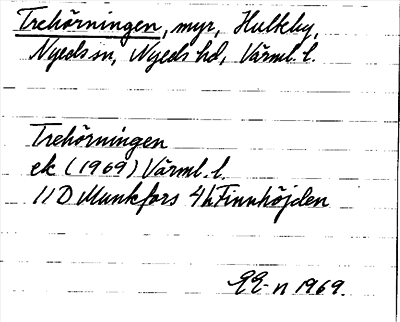 Trehörningen, myr, Hultby,
Nyeds sn, Nyeds hd, Värml. l.
Trehörningen
ek (1969) Värml. l.
11D Munkfors 4h Finnhöjden
1969.